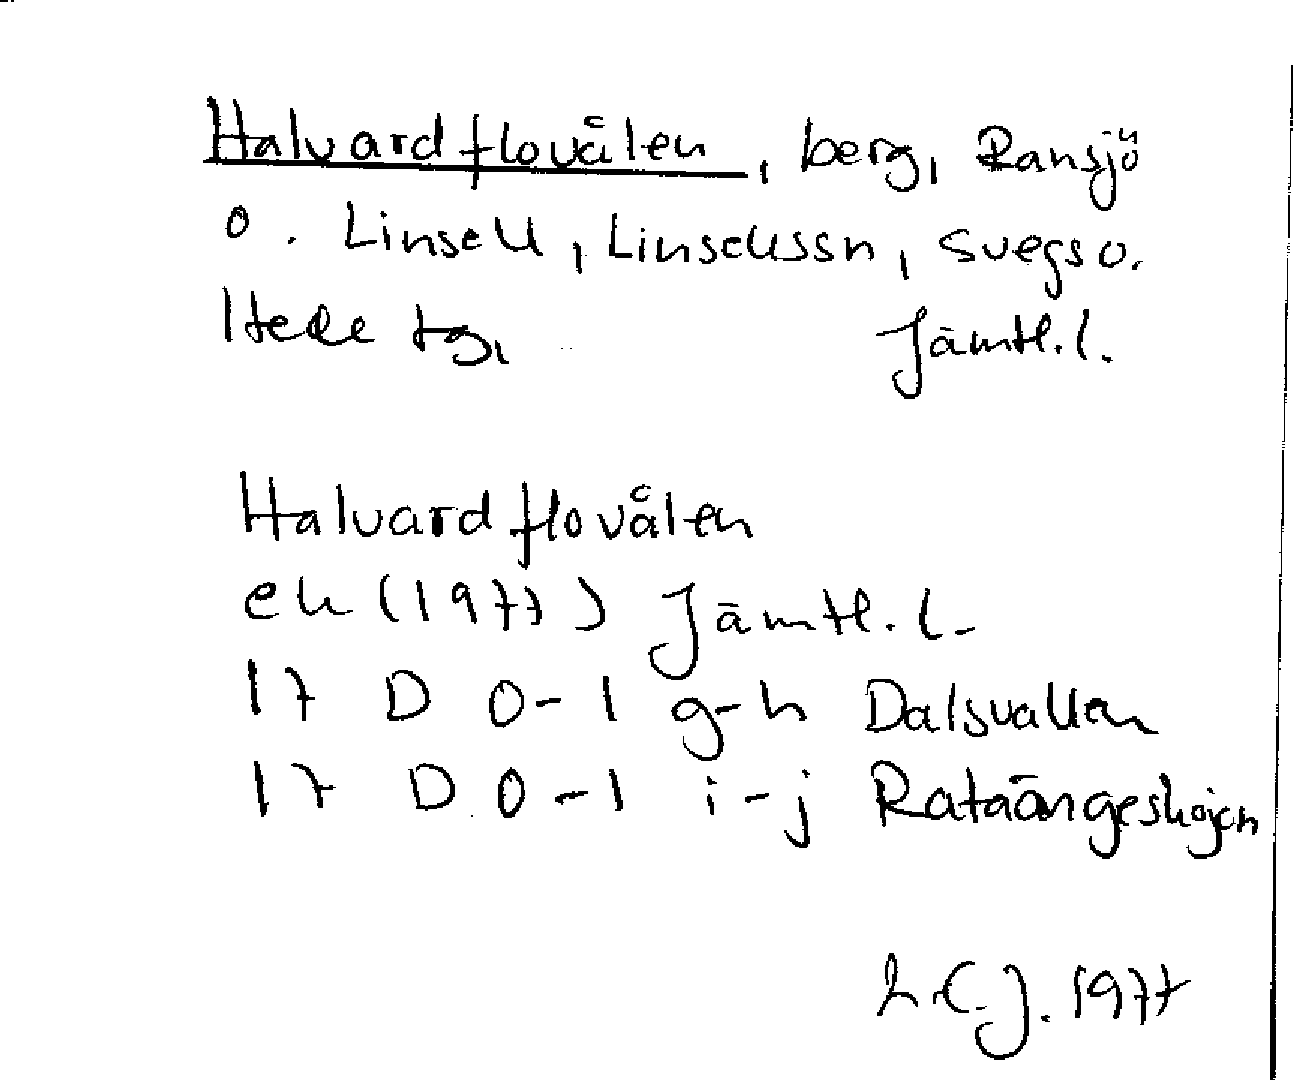 Halvardflovålen, berg, Ransjö
o. Linsell, Linsellssn, Svegs o.
Hede tg, Jämtl. l.
Halvardflovålen
ek (1977) Jämtl. l.
17 D 0-1 g-h Dalsvallen
17 D 0-1 i-j Rataängeshöjen
L.C.J. 1977